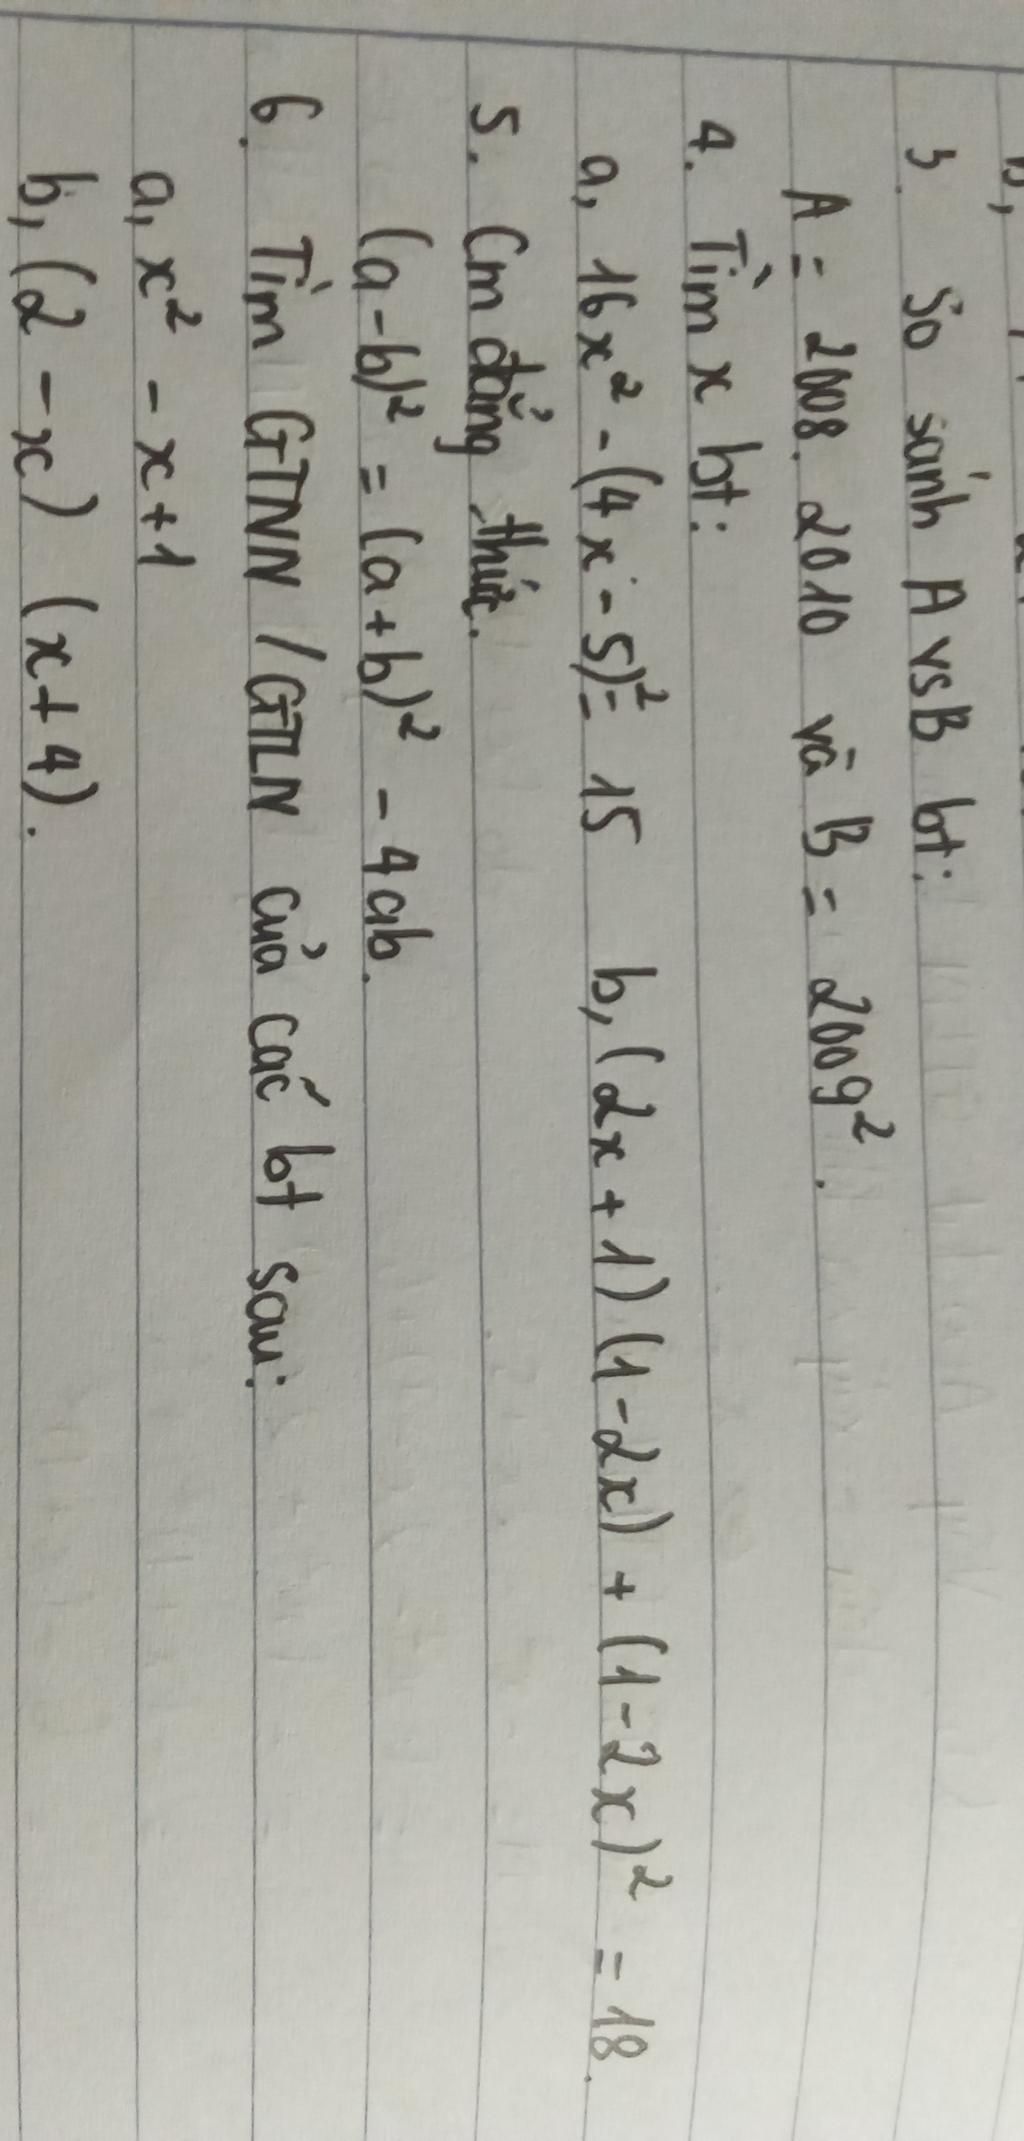 3. So sánh A vs B bt:
A = 2008. 2010 và B = 2009².
4. Tìm x bt:
a, 16x² - (4x - 5)² = 15 b, (2x + 1) (1 - 2x) + (1 - 2x)² = 18.
5. Cm đẳng thức.
(a - b)² = (a + b)² - 4ab.
6. Tìm GTNN / GTLN của các bt sau:
a, x² - x + 1
b, (2 - x) (x + 4).